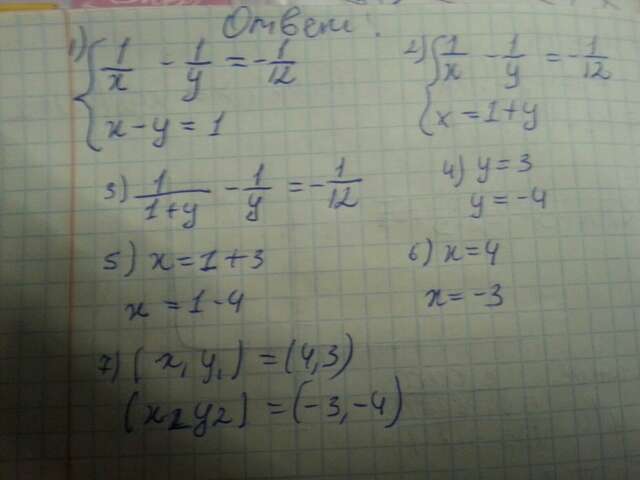 Ответ:
1) { 1/x - 1/y = -1/12
x - y = 1
2) { 1/x - 1/y = -1/12
x = 1 + y
3) 1/(1+y) - 1/y = -1/12
4) y = 3
y = -4
5) x = 1 + 3
x = 1 - 4
6) x = 4
x = -3
7) (x₁ y₁) = (4,3)
(x₂ y₂) = (-3,-4)